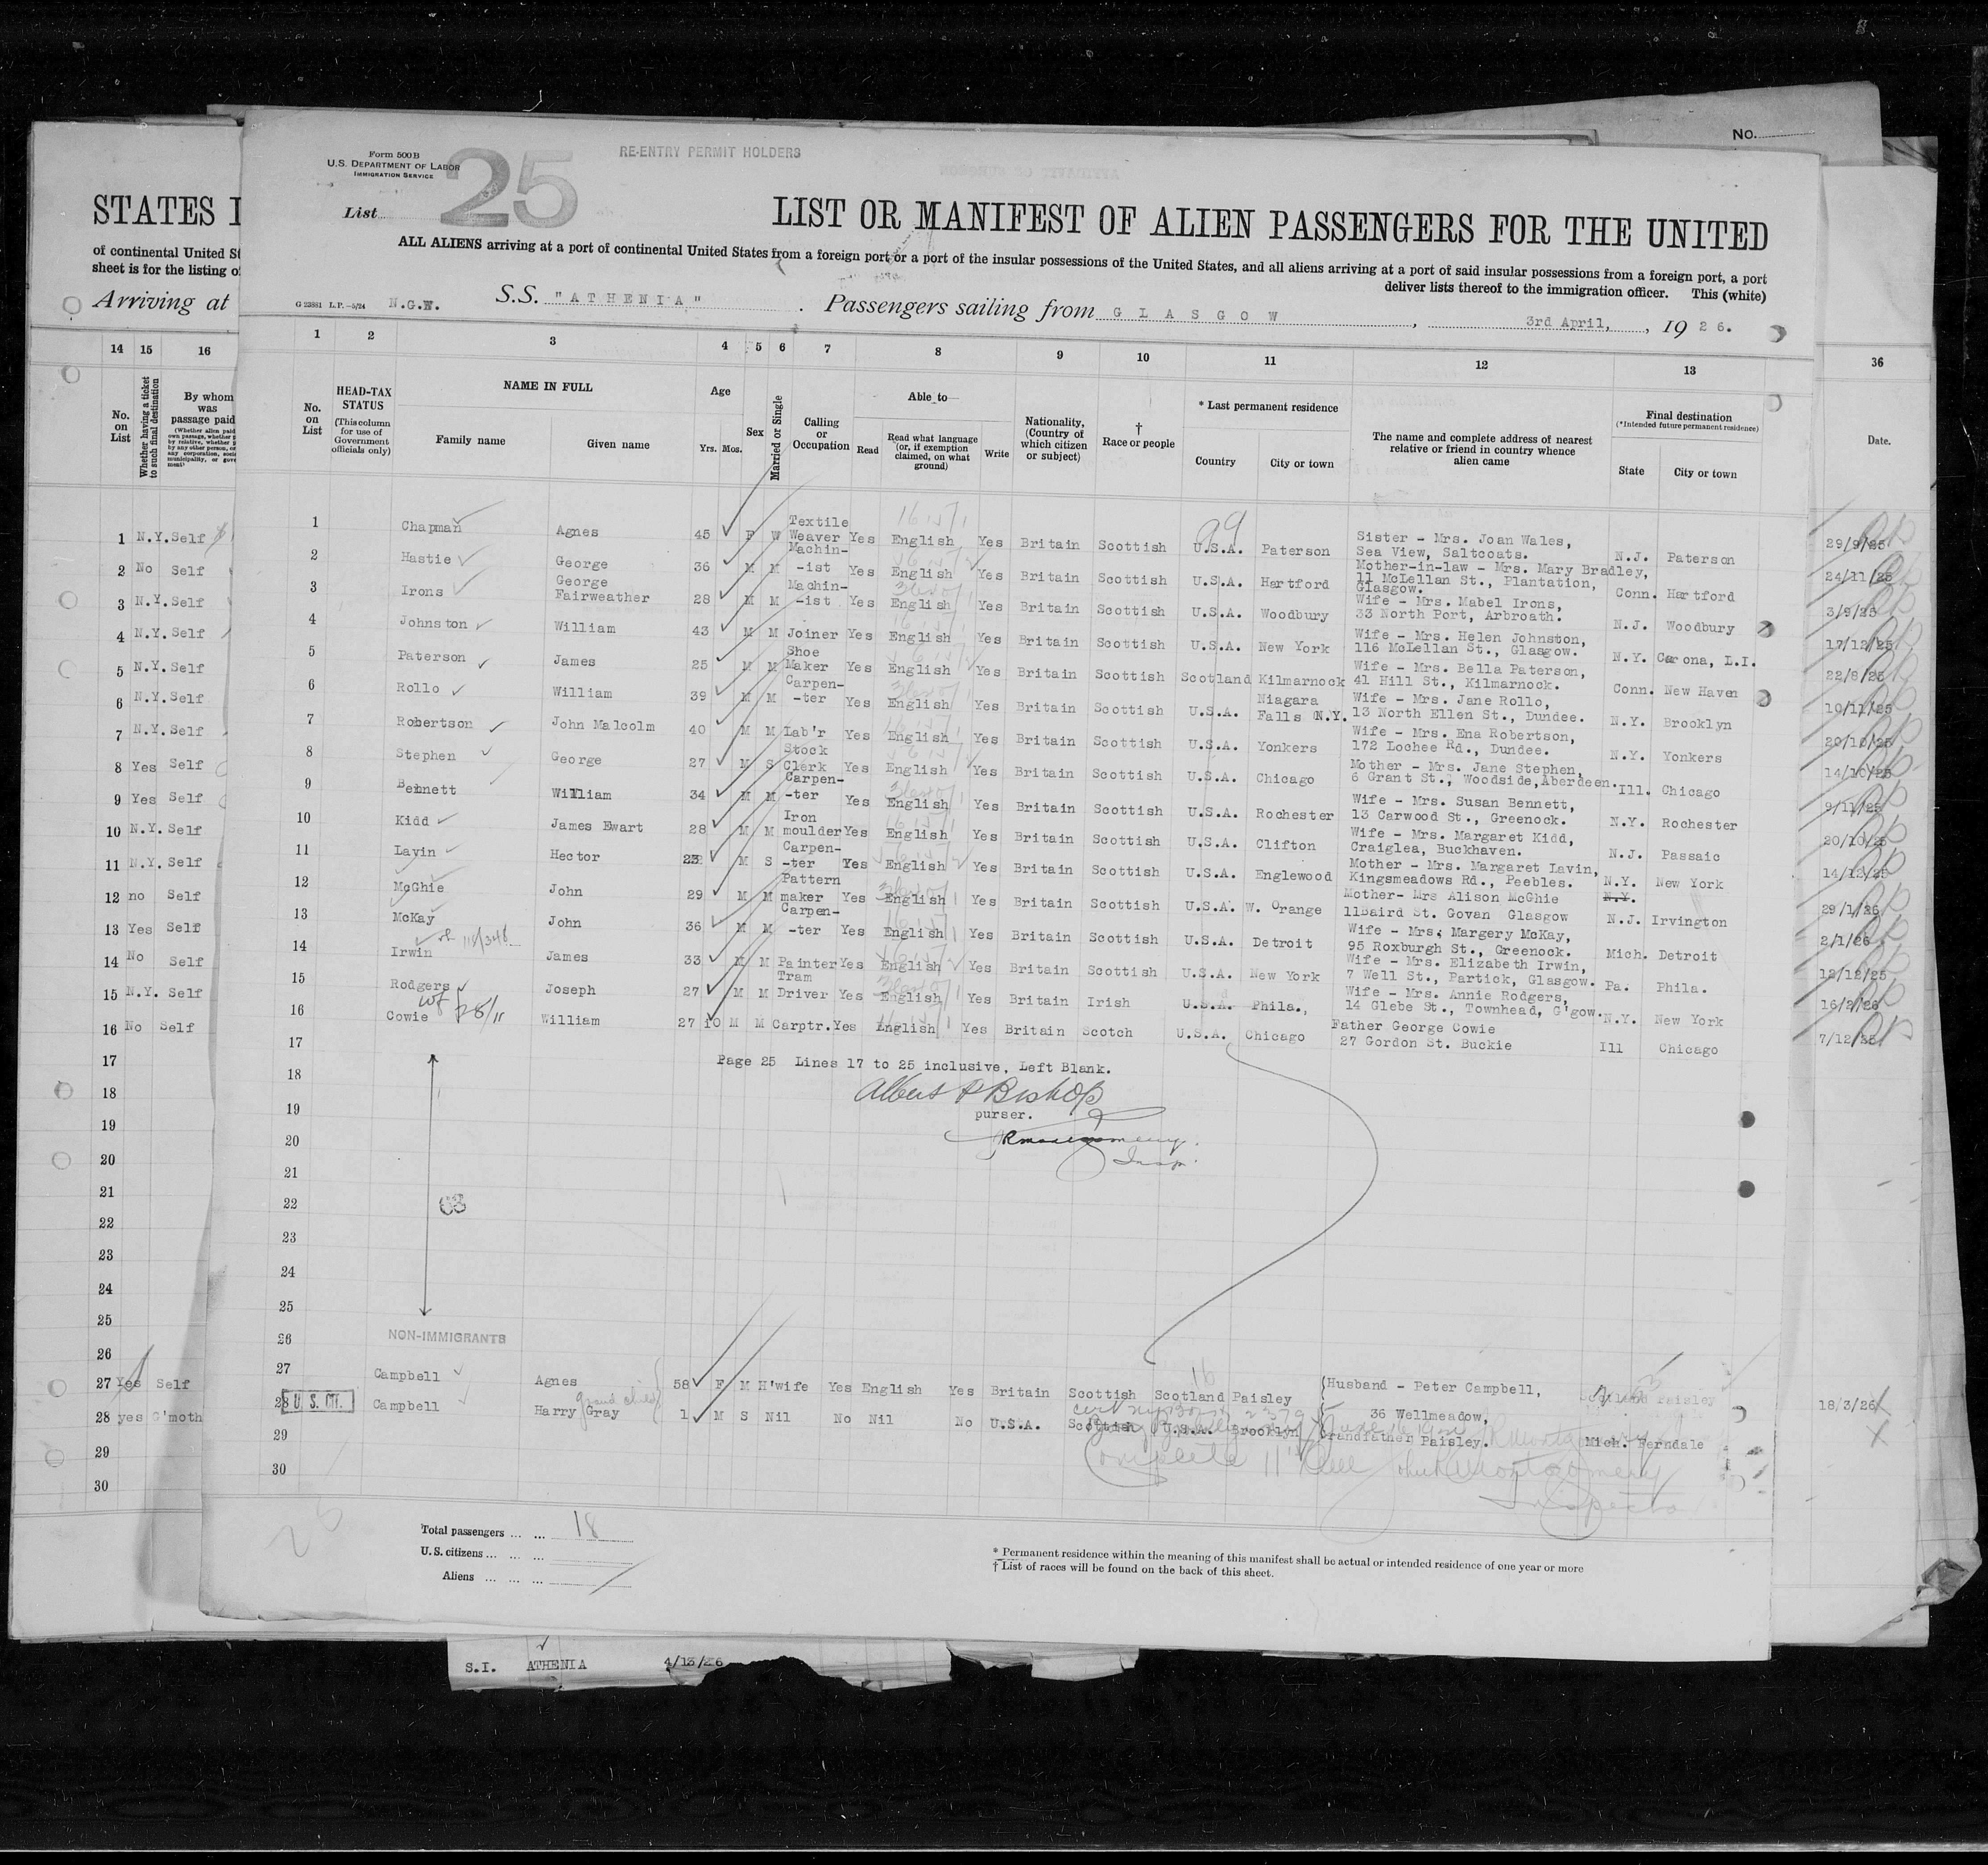 No.
Form 500B
U.S. DEPARTMENT OF LABOR
IMMIGRATION SERVICE
25
RE-ENTRY PERMIT HOLDERS
List
LIST OR MANIFEST OF ALIEN PASSENGERS FOR THE UNITED
STATES I
ALL ALIENS arriving at a port of continental United States from a foreign port or a port of the insular possessions of the United States, and all aliens arriving at a port of said insular possessions from a foreign port, a port
deliver lists thereof to the immigration officer. This (white)
of continental United St
sheet is for the listing o
Arriving at
G 23881 L.P.-5/24 N.G.W. S.S. "ATHENIA" . Passengers sailing from GLASGOW , 3rd April, , 1926.
14 15 16
1 2 3 4 5 6 7 8 9 10 11 12 13
36
No. on List
Whether having a ticket to such final destination
By whom was passage paid
No. on List
HEAD-TAX STATUS
(This column for use of Government officials only)
NAME IN FULL
Family name Given name
Age
Yrs. Mos.
Sex
Married or Single
Calling or Occupation
Able to
Read Read what language (or, if exemption claimed, on what ground) Write
Nationality, (Country of which citizen or subject)
† Race or people
* Last permanent residence
Country City or town
The name and complete address of nearest relative or friend in country whence alien came
Final destination
(*Intended future permanent residence)
State City or town
Date.
1 N.Y. Self
1 Chapman Agnes 45 F W Textile Weaver Yes English Yes Britain Scottish U.S.A. Paterson Sister - Mrs. Joan Wales, Sea View, Saltcoats. N.J. Paterson 29/9/25
2 No Self
2 Hastie George 36 M M Machin--ist Yes English Yes Britain Scottish U.S.A. Hartford Mother-in-law - Mrs. Mary Bradley, 11 McLellan St., Plantation, Glasgow. Conn. Hartford 24/11/25
3 N.Y. Self
3 Irons George Fairweather 28 M M Machin--ist Yes English Yes Britain Scottish U.S.A. Woodbury Wife - Mrs. Mabel Irons, 33 North Port, Arbroath. N.J. Woodbury 3/9/25
4 N.Y. Self
4 Johnston William 43 M M Joiner Yes English Yes Britain Scottish U.S.A. New York Wife - Mrs. Helen Johnston, 116 McLellan St., Glasgow. N.Y. Corona, L.I. 17/12/25
5 N.Y. Self
5 Paterson James 25 M M Shoe Maker Yes English Yes Britain Scottish Scotland Kilmarnock Wife - Mrs. Bella Paterson, 41 Hill St., Kilmarnock. Conn. New Haven 22/8/25
6 N.Y. Self
6 Rollo William 39 M M Carpen--ter Yes English Yes Britain Scottish U.S.A. Niagara Falls N.Y. Wife - Mrs. Jane Rollo, 13 North Ellen St., Dundee. N.Y. Brooklyn 10/11/25
7 N.Y. Self
7 Robertson John Malcolm 40 M M Lab'r Yes English Yes Britain Scottish U.S.A. Yonkers Wife - Mrs. Ena Robertson, 172 Lochee Rd., Dundee. N.Y. Yonkers 20/10/25
8 Yes Self
8 Stephen George 27 M S Stock Clerk Yes English Yes Britain Scottish U.S.A. Chicago Mother - Mrs. Jane Stephen, 6 Grant St., Woodside, Aberdeen. Ill. Chicago 14/10/25
9 Yes Self
9 Bennett William 34 M M Carpen--ter Yes English Yes Britain Scottish U.S.A. Rochester Wife - Mrs. Susan Bennett, 13 Carwood St., Greenock. N.Y. Rochester 9/11/25
10 N.Y. Self
10 Kidd James Ewart 28 M M Iron moulder Yes English Yes Britain Scottish U.S.A. Clifton Wife - Mrs. Margaret Kidd, Craiglea, Buckhaven. N.J. Passaic 20/10/25
11 N.Y. Self
11 Lavin Hector M S Carpen--ter Yes English Yes Britain Scottish U.S.A. Englewood Mother - Mrs. Margaret Lavin, Kingsmeadows Rd., Peebles. N.Y. New York 14/12/25
12 no Self
12 McGhie John 29 M M Pattern maker Yes English Yes Britain Scottish U.S.A. W. Orange Mother- Mrs Alison McGhie 11Baird St. Govan Glasgow N.Y. N.J. Irvington 29/1/26
13 Yes Self
13 McKay John 36 M M Carpen--ter Yes English Yes Britain Scottish U.S.A. Detroit Wife - Mrs. Margery McKay, 95 Roxburgh St., Greenock. Mich. Detroit 2/1/26
14 No Self
14 Irwin James 33 M M Painter Yes English Yes Britain Scottish U.S.A. New York Wife - Mrs. Elizabeth Irwin, 7 Well St., Partick, Glasgow. Pa. Phila. 12/12/25
15 N.Y. Self
15 Rodgers Joseph 27 M M Tram Driver Yes English Yes Britain Irish U.S.A. Phila., Wife - Mrs. Annie Rodgers, 14 Glebe St., Townhead, G'gow. N.Y. New York 16/2/26
16 No Self
16 Cowie William 27 10 M M Carptr. Yes English Yes Britain Scotch U.S.A. Chicago Father George Cowie 27 Gordon St. Buckie Ill Chicago 7/12/25
17 17
Page 25 Lines 17 to 25 inclusive, Left Blank.
18 18
Albert P Bishop
19 19
purser.
20 20
Insp.
21 21
22 22
23 23
24 24
25 25
26 26
NON-IMMIGRANTS
27 Yes Self
27 Campbell Agnes 58 F M H'wife Yes English Yes Britain Scottish Scotland Paisley Husband - Peter Campbell, Scotland Paisley 18/3/26
28 yes G'moth
28 U. S. CIT. Campbell Harry Gray grand child 1 M S Nil No Nil No U.S.A. Scottish U.S.A. Brooklyn 36 Wellmeadow, Grandfather Paisley. Mich. Ferndale
29 29
30 30
John R Montgomery
Inspector
Total passengers ... ... 18
U.S. citizens ... ... ...
Aliens ... ... ...
* Permanent residence within the meaning of this manifest shall be actual or intended residence of one year or more
† List of races will be found on the back of this sheet.
S.I. ATHENIA 4/13/26